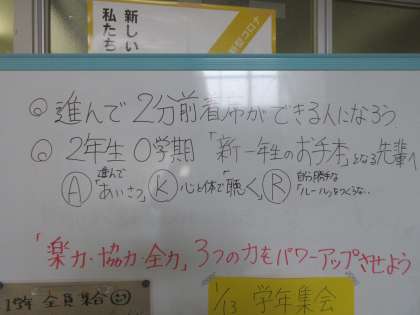 新しい
私たち
新型コロナ
◎ 進んで2分前着席ができる人になろう
◎ 2年生0学期「新一年生のお手本」となる先輩へ
Ⓐ進んで「あいさつ」Ⓚ心と体で「聴く」Ⓡ自分勝手な「ルール」をつくらない..
「楽力・協力・全力」3つの力をパワーアップさせよう
1学年 全員集合
1/13 学年集会